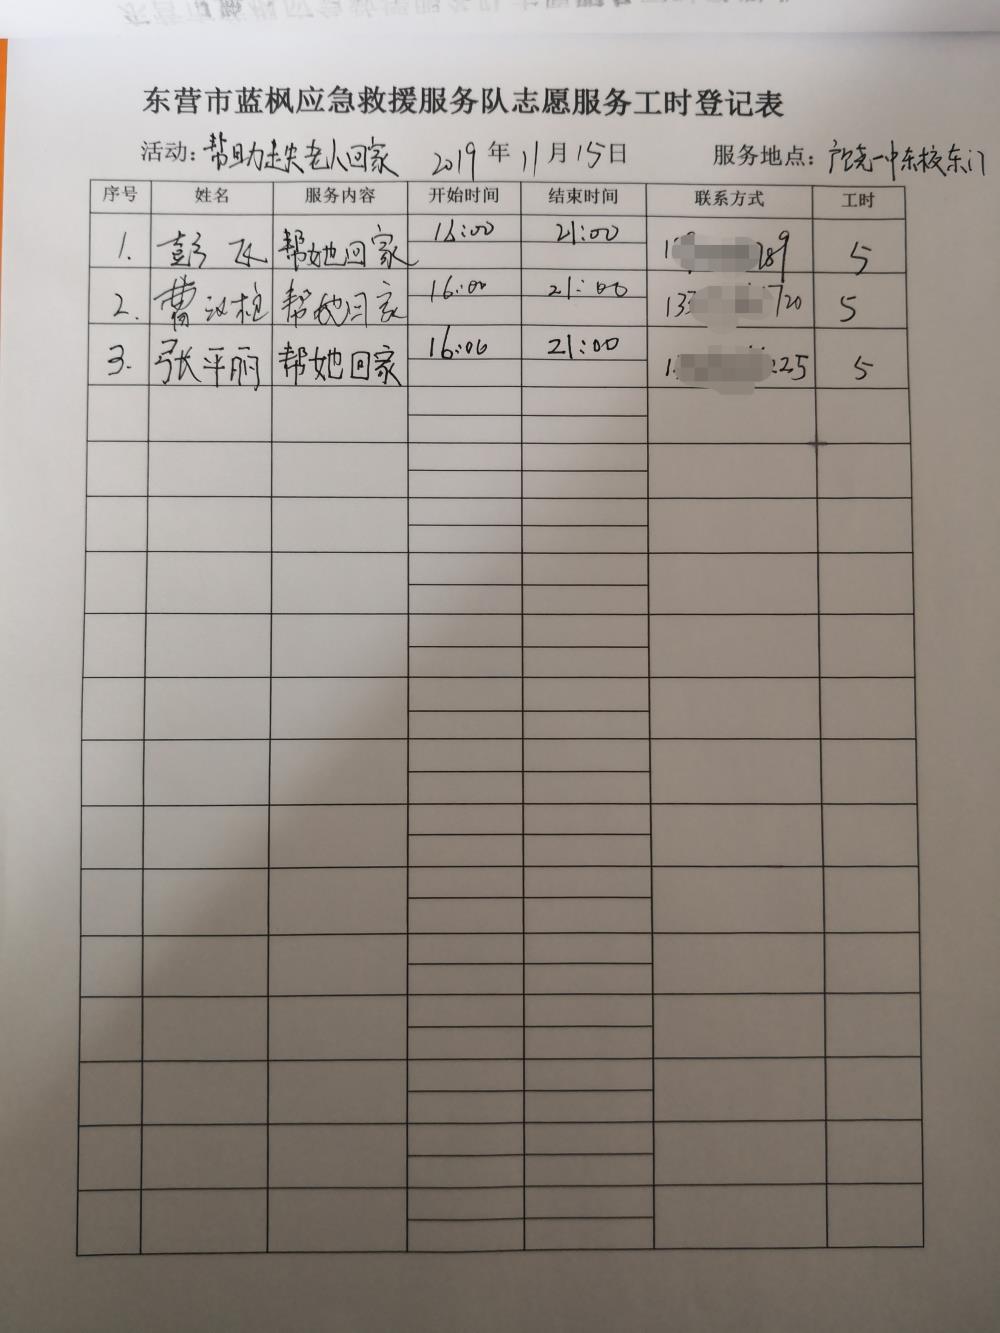 东营市蓝枫应急救援服务队志愿服务工时登记表
活动：帮助走失老人回家 2019年11月15日 服务地点：广饶一中东校东门
序号 姓名 服务内容 开始时间 结束时间 联系方式 工时
1. 彭飞 帮她回家 16:00 21:00 289 5
2. 曹汉柱 帮她回家 16:00 21:00 133 720 5
3. 张平丽 帮她回家 16:00 21:00 225 5